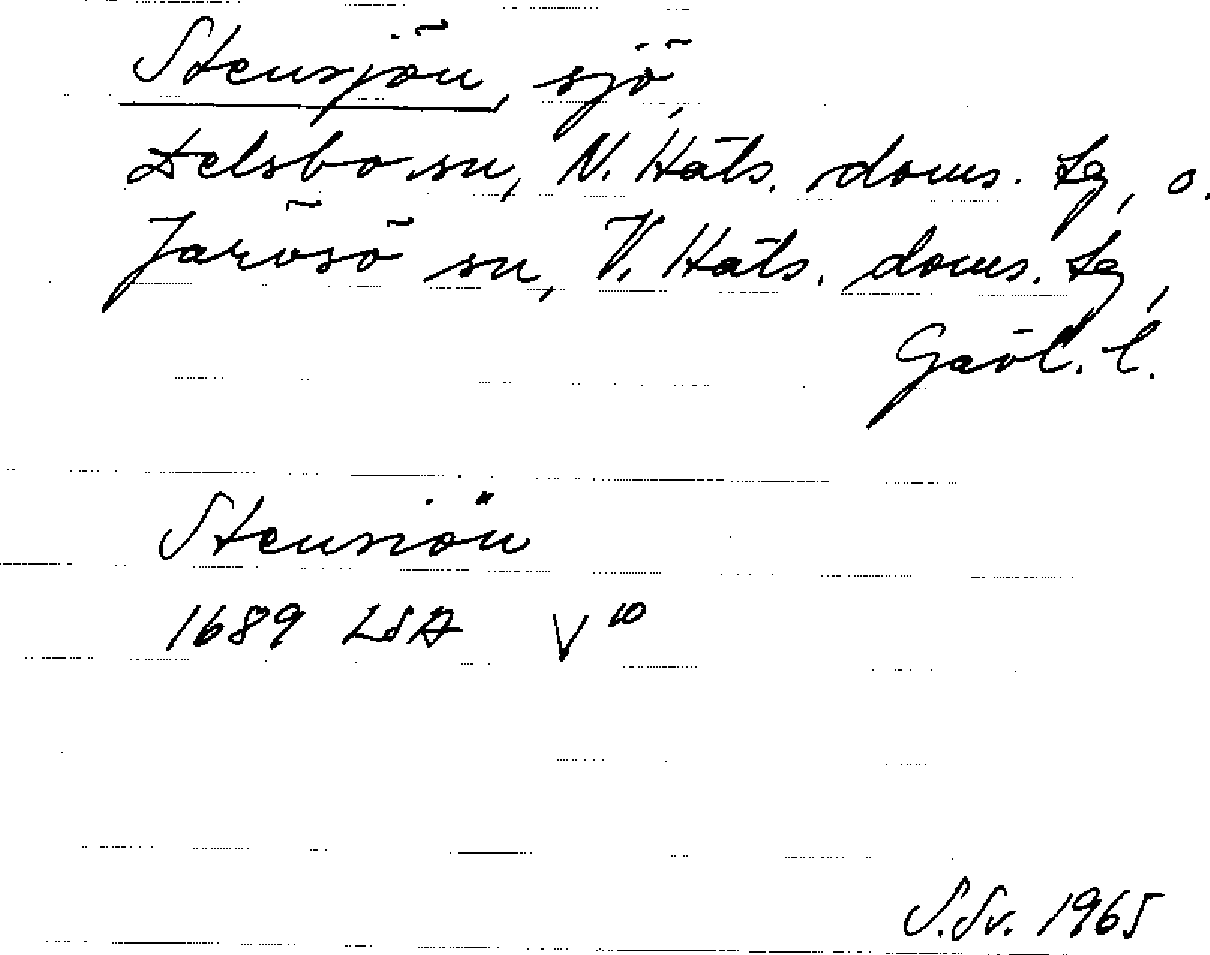 Stensjön, sjö,
Delsbo sn, N. Häls. doms. tg, o.
Järvsö sn, V. Häls. doms. tg,
Gävl. l.
Stensiön
1689 LSA V 10
S.Sv. 1965